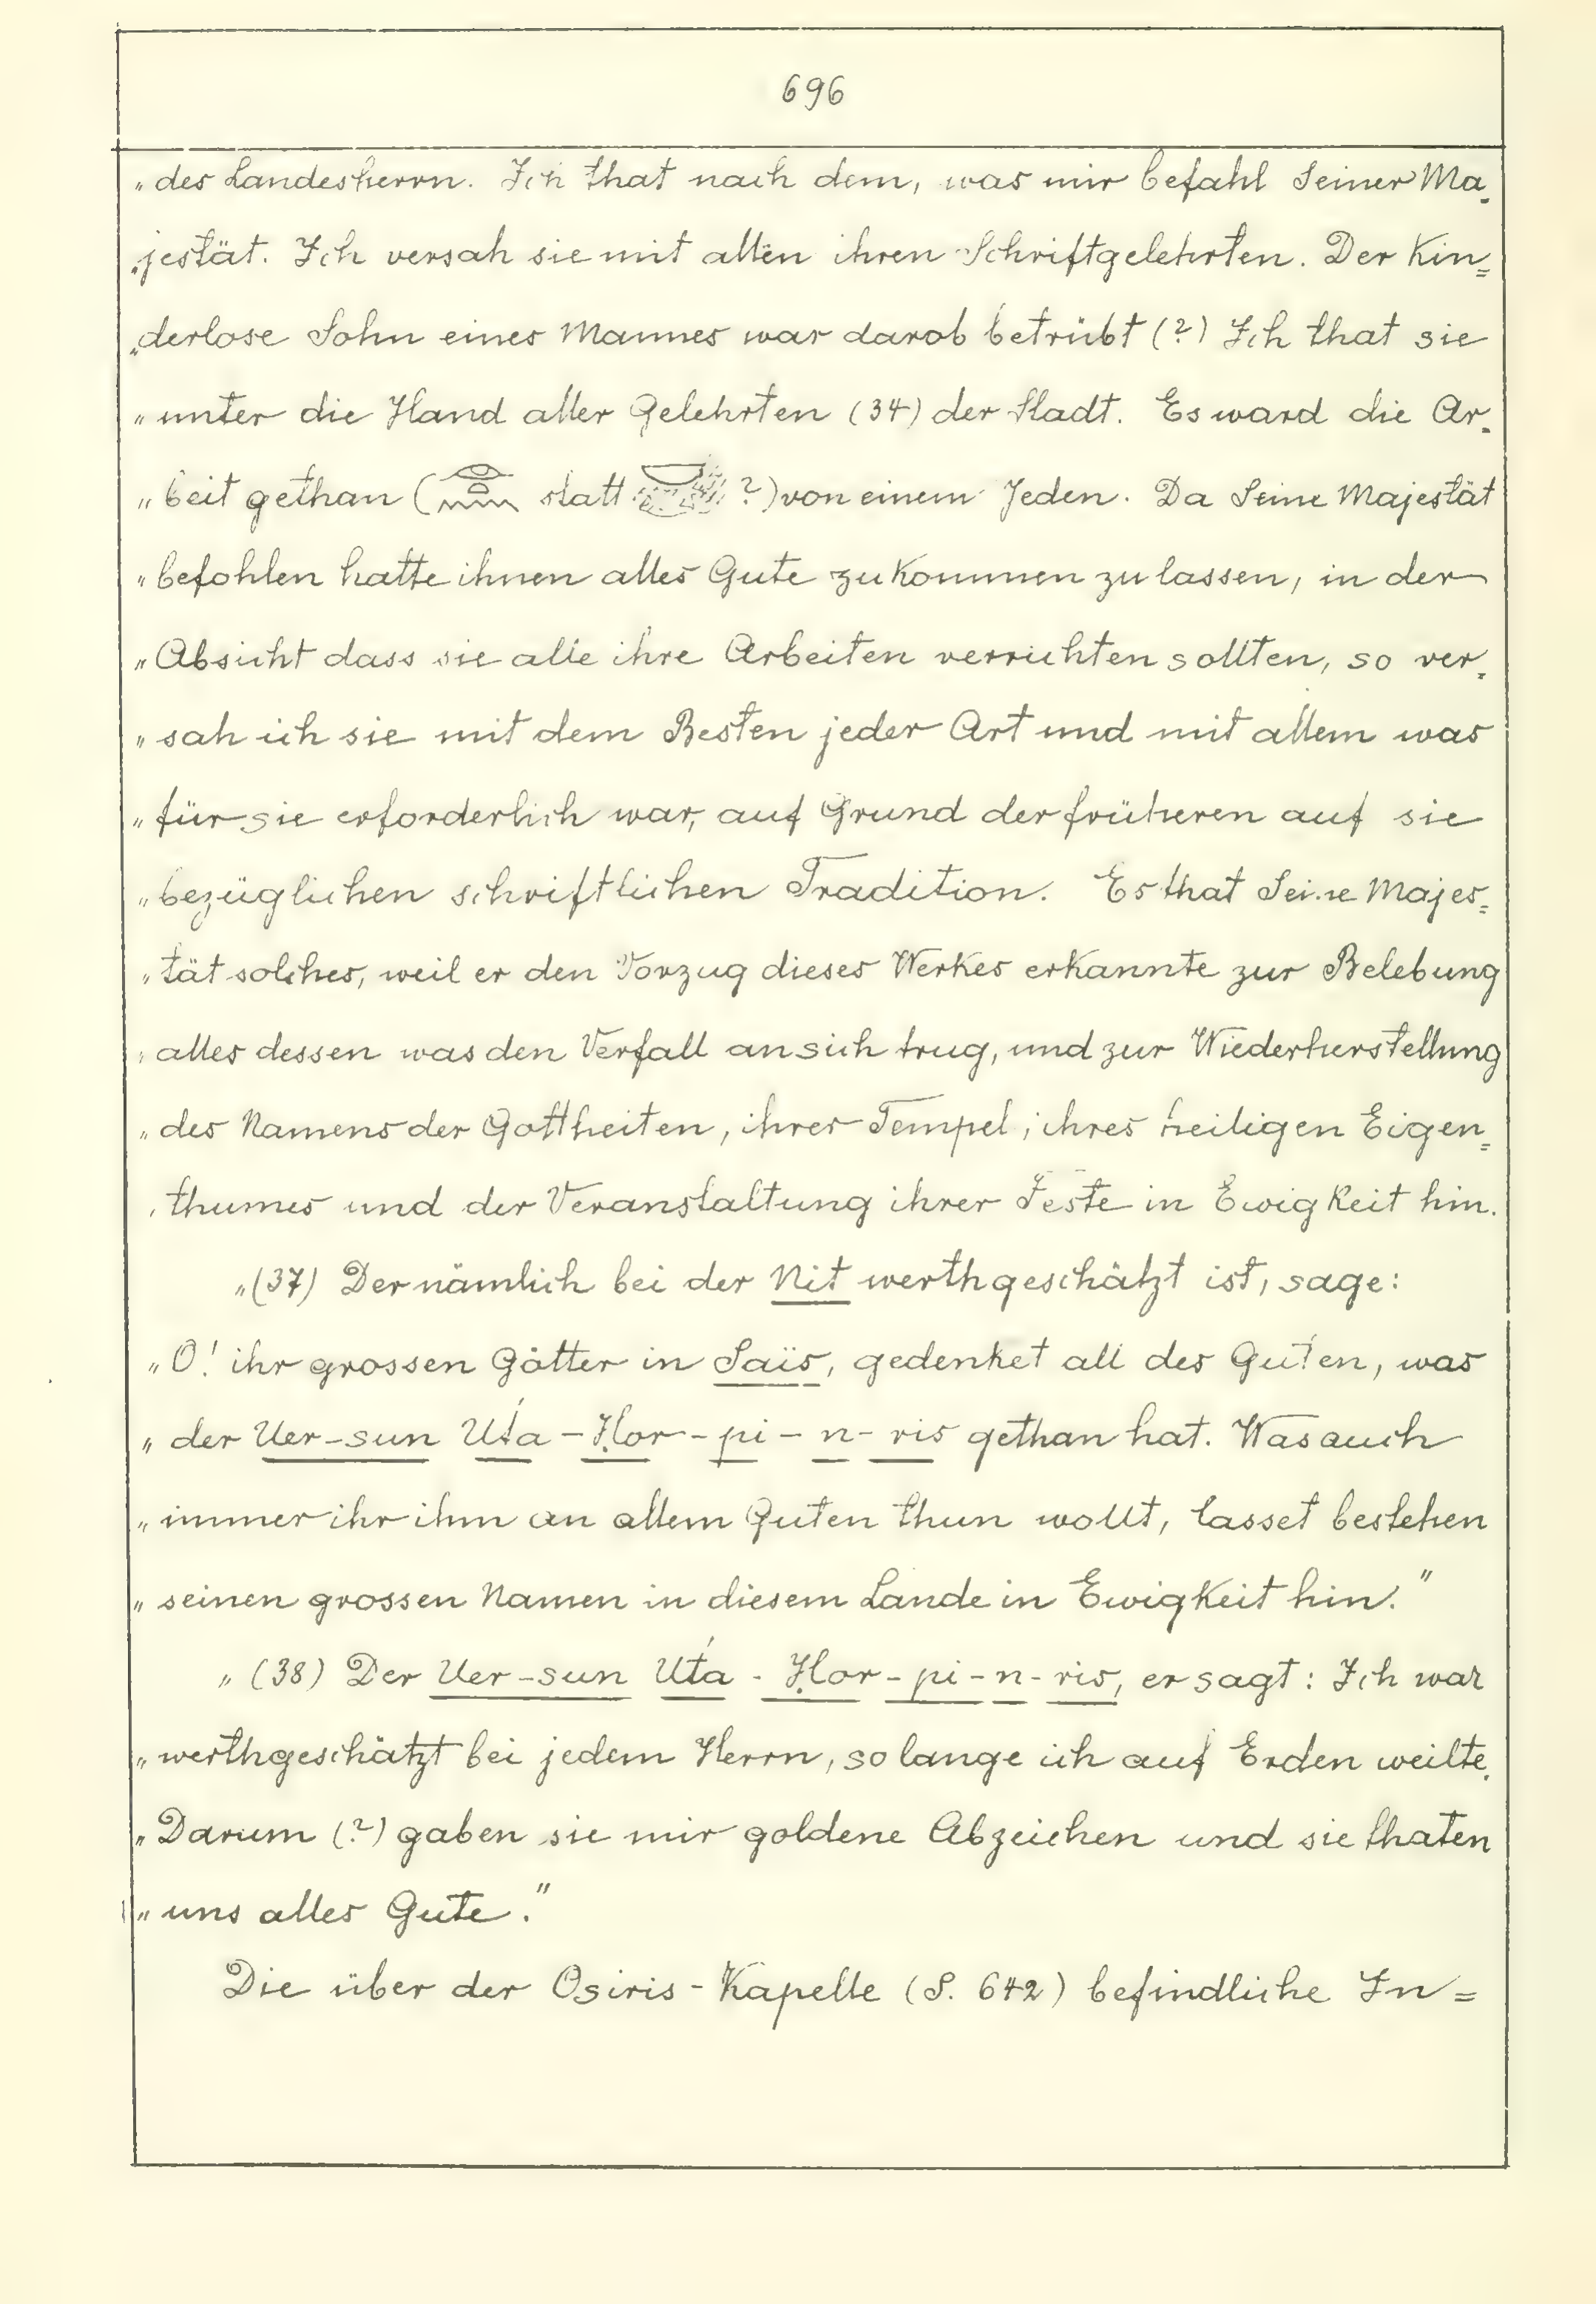 696
„des Landesherrn. Ich that nach dem, was mir befahl Seiner Ma-
„jestät. Ich versah sie mit allen ihren Schriftgelehrten. Der Kin=
„derlose Sohn eines Mannes war darob betrübt (?) Ich that sie
„unter die Hand aller Gelehrten (34) der Stadt. Es ward die Ar-
„beit gethan ( statt ?) von einem Jeden. Da Seine Majestät
„befohlen hatte ihnen alles Gute zukommen zu lassen, in der
„Absicht dass sie alle ihre Arbeiten verrichten sollten, so ver-
„sah ich sie mit dem Besten jeder Art und mit allem was
„für sie erforderlich war, auf Grund der früheren auf sie
„bezüglichen schriftlichen Tradition. Es that Seine Majes=
„tät solches, weil er den Vorzug dieses Werkes erkannte zur Belebung
„alles dessen was den Verfall an sich trug, und zur Wiederherstellung
„des Namens der Gottheiten, ihrer Tempel, ihres heiligen Eigen=
„thumes und der Veranstaltung ihrer Feste in Ewigkeit hin.
„(37) Der nämlich bei der Nit werthgeschätzt ist, sage:
„O! ihr grossen Götter in Saïs, gedenket all des Guten, was
„der Uer-sun Uťa-Ḥor-pi-n-ris gethan hat. Was auch
„immer ihr ihm an allem Guten thun wollt, lasset bestehen
„seinen grossen Namen in diesem Lande in Ewigkeit hin."
„(38) Der Uer-sun Uťa-Ḥor-pi-n-ris, er sagt: Ich war
„werthgeschätzt bei jedem Herrn, so lange ich auf Erden weilte.
„Darum (?) gaben sie mir goldene Abzeichen und sie thaten
„uns alles Gute."
Die über der Osiris-Kapelle (S. 642) befindliche In=